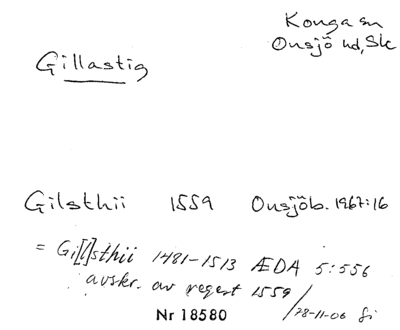 Konga sn
Onsjö hd, Sk
Gillastig
Gilsthii 1559 Onsjöb. 1967:16
= Gi[l]sthii 1481-1513 ÆDA 5:556
avskr. av regest 1559 / 78-11-06 Gi
Nr 18580